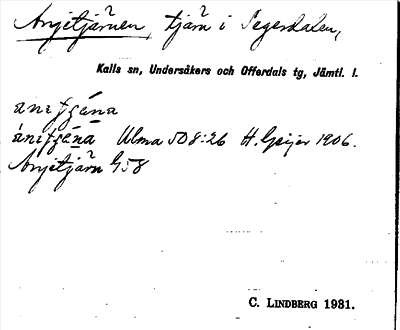 Anjetjärnen, tjärn i Segerdalen,
Kalls sn, Undersåkers och Offerdals tg, Jämtl. l.
Ulma 50 8:26 H. Geijer 1906.
Anjetjärn G58
C. LINDBERG 1931.